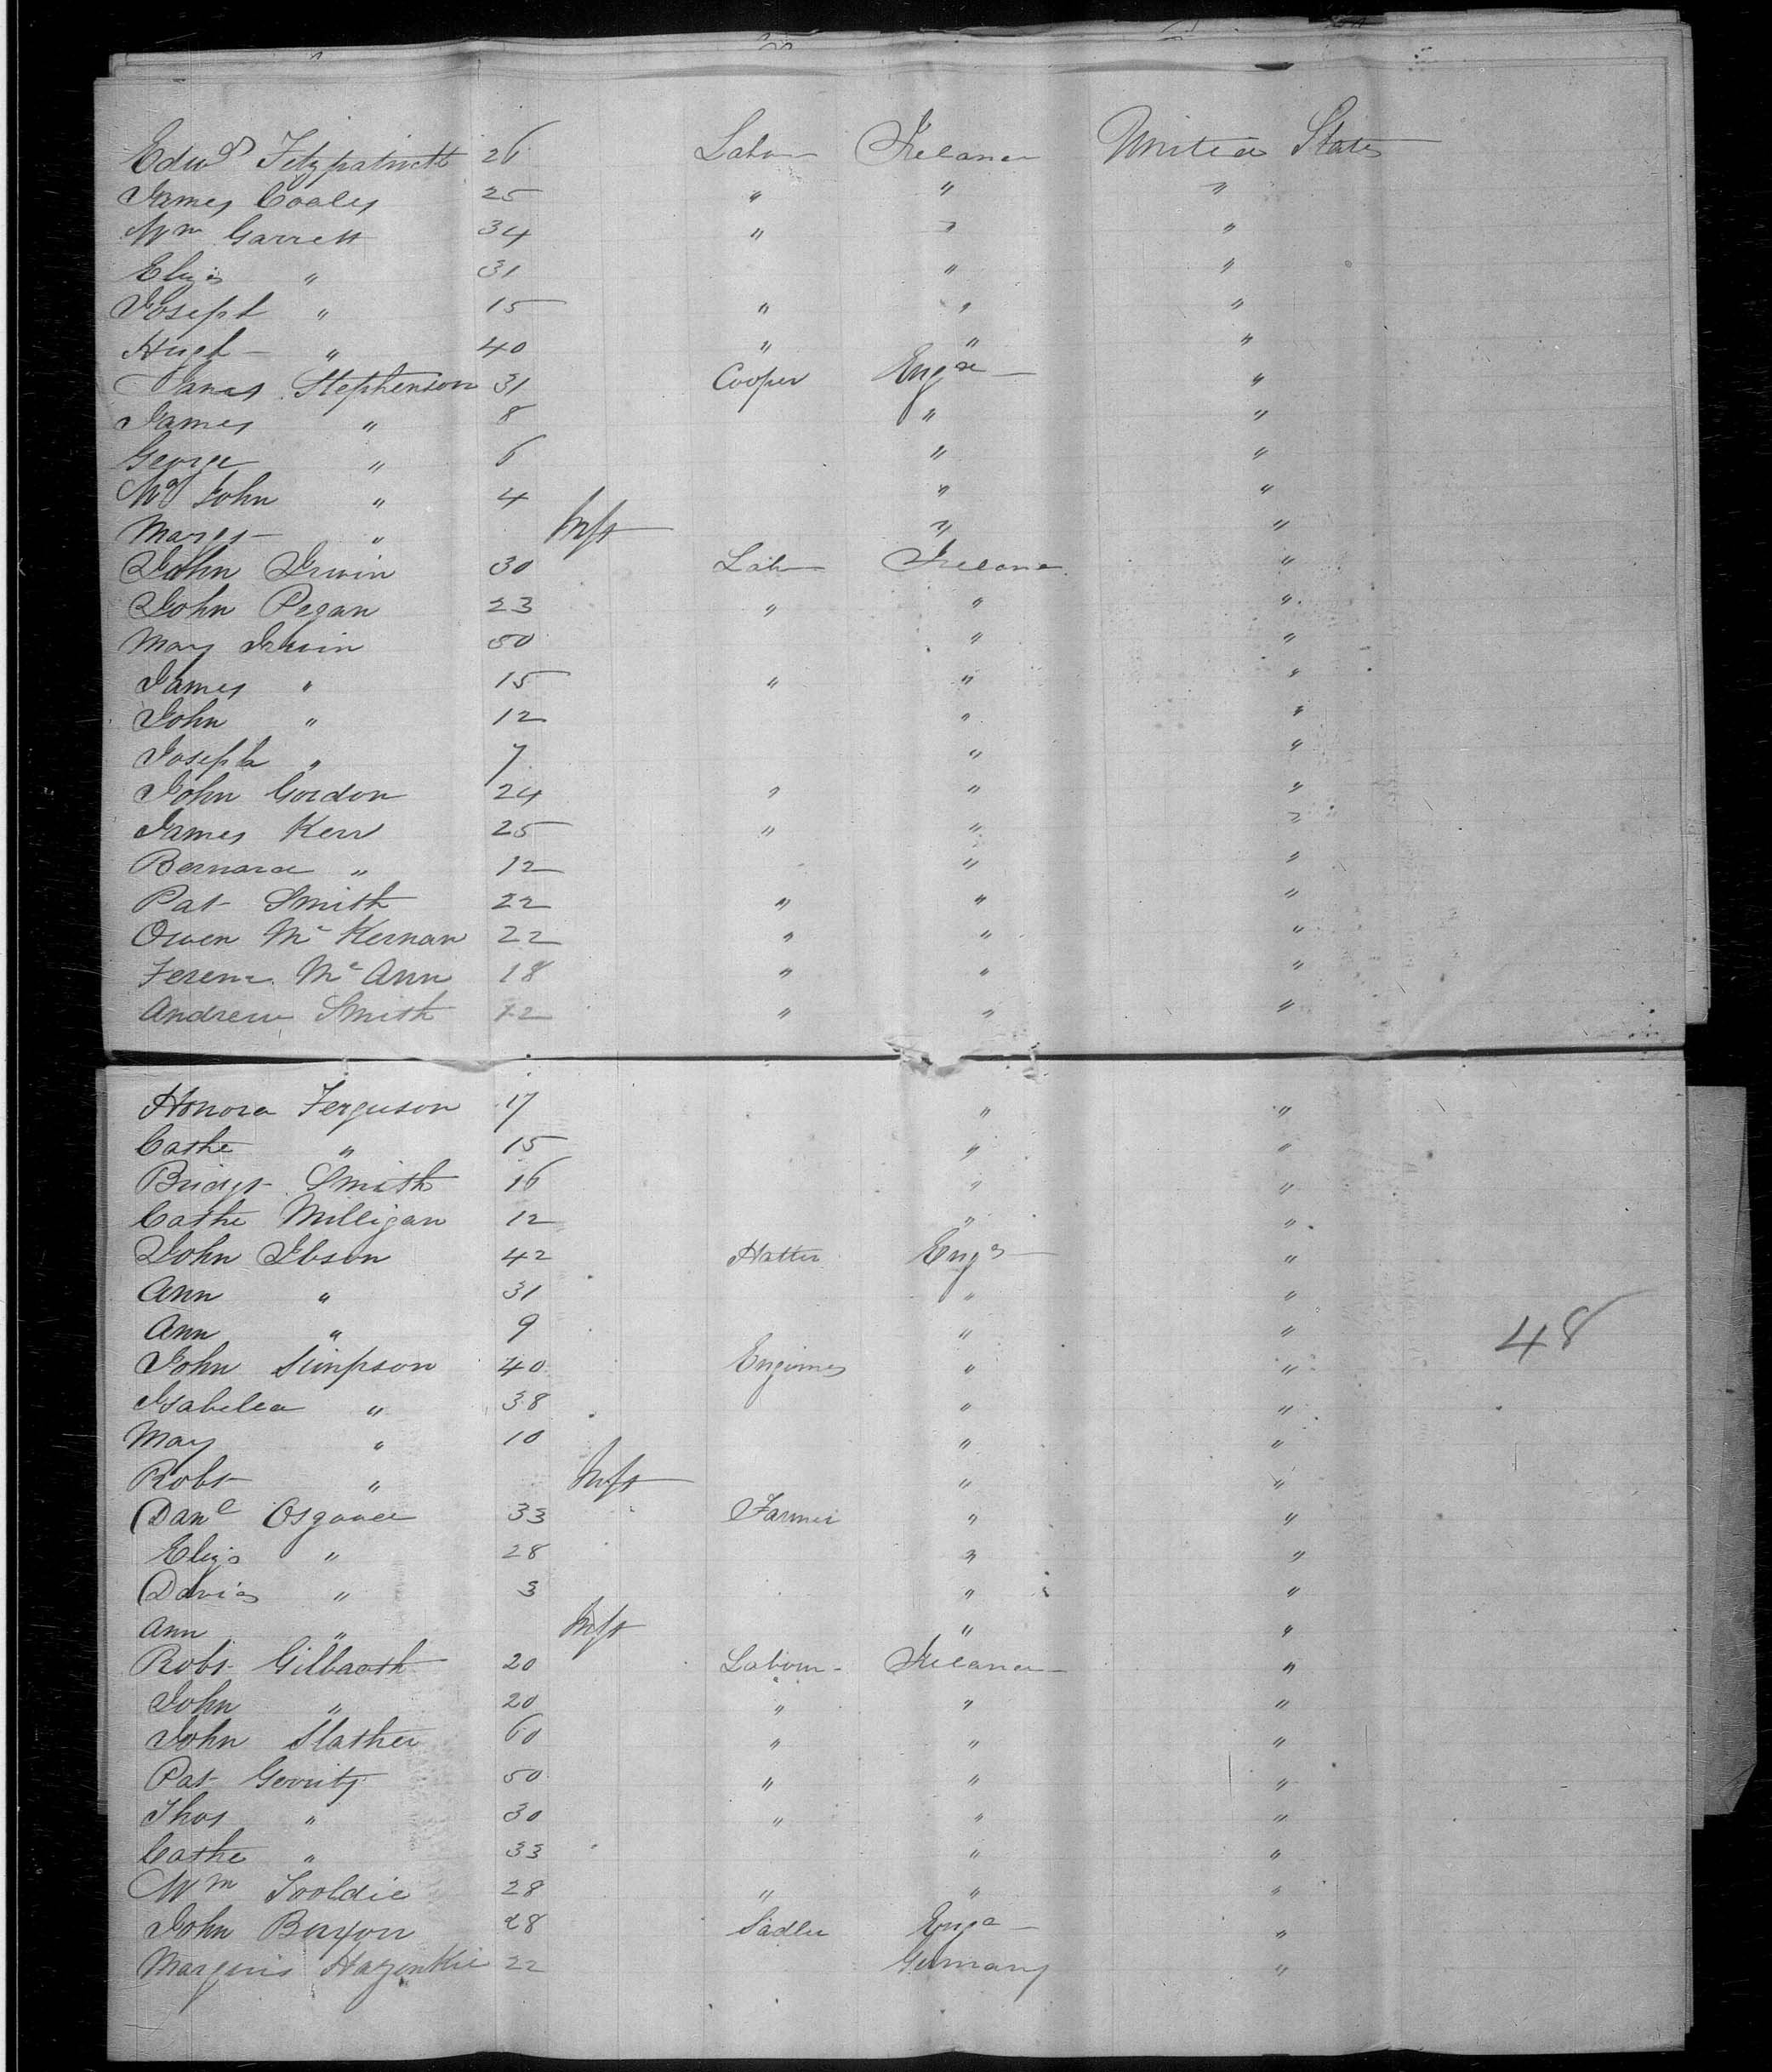 Edwd Fitzpatrick 26 Labor Ireland United States
James Coaley 25 " " "
Wm Garrett 34 " " "
Eliza " 31 " "
Joseph " 15 " " "
Hugh " 40 " " "
James Stephenson 31 Cooper Engd "
James " 8 " "
George " 6 " "
Wm John " 4 " "
Margt " Inft " "
John Irwin 30 Labr Ireland "
John Pegan 23 " " "
Mary Irwin 50 " "
James " 15 " " "
John " 12 " "
Joseph " 7 " "
John Gordon 24 " " "
James Kerr 25 " " "
Bernard " 12 " "
Pat Smith 22 " " "
Owen Mc Kernan 22 " " "
Mc Ann 18 " " "
Andrew Smith 12 " " "
Honora Ferguson 17 " "
Cathe " 15 " "
Bridgt Smith 16 " "
Cathe Milligan 12 " "
John Ibson 42 Hatter Engd "
Ann " 31 " "
Ann " 9 " "
48
John Simpson 40 Engineer " "
Isabella " 38 " "
Mary " 10 " "
Robt " Inft " "
Danl 33 Farmer " "
Eliza " 28 " "
David " 3 " "
Ann " Inft " "
Robt 20 Labour Ireland "
John " 20 " " "
John Slather 60 " " "
Pat Gerrity 50 " " "
Thos " 30 " " "
Cathe " 33 " "
Wm 28 " " "
John 28 Sadler Engd "
22 Germany "